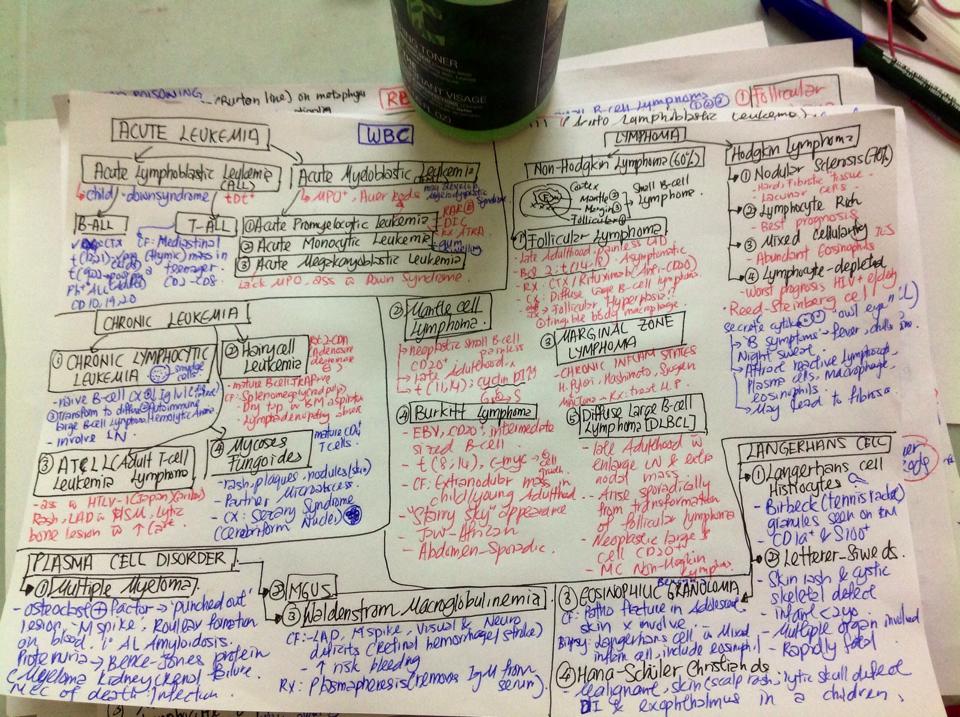 NG TONER
ANT VISAGE
OZ)
POISONING
(Burton line) on metaphy
RB
B-cell Lymphoma
① Follicular
Lymphoblastic Leukemia
WBC
ACUTE LEUKEMIA
Acute Lymphoblastic Leukemia
(ALL)
child
downsyndrome
tDt+
B-ALL
T-ALL
CTX
CF: Mediastinal
(thymic) mass in
a teenager.
CD2 - CD8
t(12;21)
t(9;22)
Ph+ ALL
CD 10, 19, 20
Acute Myeloblastic Leukemia
MPO+, Auer Rods
① Acute Promyelocytic leukemia
RAR
DIC
RX: ATRA
② Acute Monocytic Leukemia
gum swelling
③ Acute Megakaryoblastic Leukemia
Lack MPO, ass ō Down Syndrome
CHRONIC LEUKEMIA
① CHRONIC LYMPHOCYTIC
LEUKEMIA
smudge cells
naive B-cell
Transform to diffuse
large B-cell lymphoma
Autoimmune
Hemolytic Anemia
- involve LN
② Hairy cell
Leukemia
Rx: 2-CDA
Adenosine
deaminase
mature B cell TRAP+ve
CF: Splenomegaly (red pulp)
Dry tap in BM aspiration
Lymphadenopathy absent
③ ATLL (Adult T-cell
Leukemia Lymphoma
- ass ō HTLV-1 (Japan, Carib)
Rash, LAD ō HSM, lytic
bone lesion ō ↑ Ca
④ Mycoses
Fungoides
mature CD4
T cells.
- rash, plaques, nodules (skin)
- Pautrier Microabscess.
- CX: Sezary Syndrome
(Cerebriform Nuclei)
LYMPHOMA
Non-Hodgkin Lymphoma (60%)
Cortex
Mantle ②
Margin ③
Follicular ①
Small B-cell
Lymphoma
① Follicular Lymphoma
- late Adulthood painless LAD
- Bcl 2: t(14;18)
- Asymptomatic
- RX: CTX / Rituximab (Anti-CD20)
- CX: Diffuse large B-cell lymphoma
Follicular Hyperplasia
tingible body macrophage
② Mantle cell
Lymphoma.
neoplastic small B-cell
CD20+ painless
late Adulthood
t(11,14): cyclin D1
G1 → S
③ MARGINAL ZONE
LYMPHOMA
- CHRONIC INFLAM STATES
H. Pylori, Hashimoto, Sjogren
MALToma - RX: treat H.P.
④ Burkitt Lymphoma
- EBV, CD20+, intermediate
sized B-cell
- t(8,14), C-myc
cell growth
- CF: Extranodular mass in
child/young Adulthood
- "Starry sky" appearance
- Jaw-African
- Abdomen-Sporadic.
⑤ Diffuse Large B-cell
Lymphoma [DLBCL]
- late Adulthood w
enlarge LN & extra
nodal mass
- Arise sporadically
from transformation
of follicular lymphoma
- Neoplastic large B
cell CD20+
- MC Non-Hodgkin
Lymphoma
Hodgkin Lymphoma
① Nodular Sclerosis (70%)
- Hard, Fibrotic tissue
- Lacunar cells
② Lymphocyte Rich
- Best prognosis
③ Mixed cellularity
- Abundant Eosinophils
④ Lymphocyte-depleted
- Worst prognosis HIV + elderly
- Reed-Steinberg cell
secrete cytokine
"owl eye"
"B symptoms" - fever, chills
Night sweat
Attract reactive Lymphocyte,
plasma cells, Macrophage,
eosinophils.
May lead to fibrosis
LANGERHANS CELL
① Langerhans cell
Histiocytes
- Birbeck (tennis racket)
granules seen on EM
- CD1a+ & S100+
② Letterer-Siweds.
- Skin rash & cystic
skeletal defect
- infant <2yo
- Multiple organ involved
- Rapidly fatal
③ EOSINOPHILIC GRANULOMA
Benign
CF: Patho fracture in Adolescent
skin X involve
Biopsy: Langerhans cell ō Mixed
inflam cell, include eosinophil
④ Hana-Schüler Christiands
malignant, skin (scalp rash), lytic skull defect
DI & exophthalmus in a children.
PLASMA CELL DISORDER
① Multiple Myeloma.
- osteoclast ⊕ factor → 'punched out'
lesion, M spike, Rouleaux formation
on blood. 1° AL Amyloidosis.
Proteinuria → Bence-Jones protein
(Myeloma Kidney) Renal failure.
MCC of death: Infection.
② MGUS
③ Waldenstram Macroglobulinemia
CF: - LAD, M spike, Visual & Neuro
deficits (retinal hemorrhage/stroke)
- ↑ risk bleeding
RX: Plasmapheresis (removes IgM from
serum).